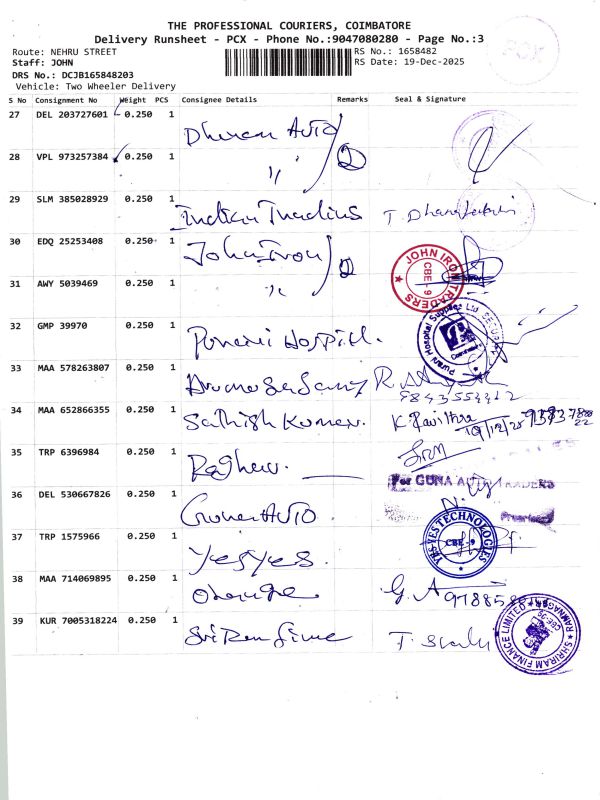 THE PROFESSIONAL COURIERS, COIMBATORE
Delivery Runsheet - PCX - Phone No.:9047080280 - Page No.:3
Route: NEHRU STREET
RS No.: 1658482
Staff: JOHN
RS Date: 19-Dec-2025
DRS No.: DCJB165848203
Vehicle: Two Wheeler Delivery
PCX
S No Consignment No Weight PCS Consignee Details Remarks Seal & Signature
27 DEL 203727601 0.250 1 Auto
28 VPL 973257384 0.250 1 〃 2
29 SLM 385028929 0.250 1 Indian
30 EDQ 25253408 0.250 1 John Iron 2
JOHN IRON TRADERS CBE - 9
31 AWY 5039469 0.250 1 〃
32 GMP 39970 0.250 1 Hospital.
Purani Hospital Supplies Ltd SECURITY
33 MAA 578263807 0.250 1
34 MAA 652866355 0.250 1 Sathish Kumar. 19/12/25
35 TRP 6396984 0.250 1
For GUNA AUTO TRADERS
36 DEL 530667826 0.250 1 AUTO
37 TRP 1575966 0.250 1 Yes yes.
YES YES TECHNOLOGIES CBE - 9
38 MAA 714069895 0.250 1 G. A
39 KUR 7005318224 0.250 1 Sri Ram
SHRIRAM FINANCE LIMITED